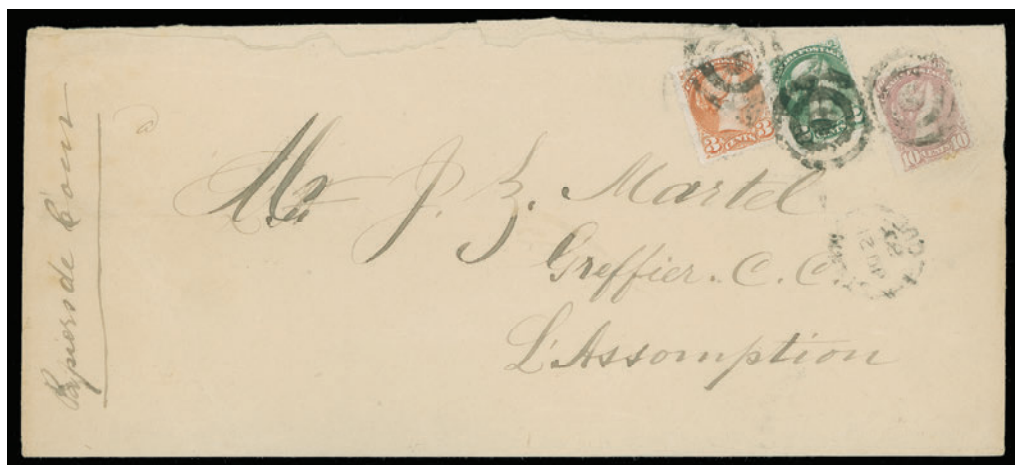 Papiers de Cour
Mr J. Z. Martel
Greffier. C. C.
L'Assomption
3 CENTS 3
CANADA POSTAGE
CENTS
10 CENTS 10